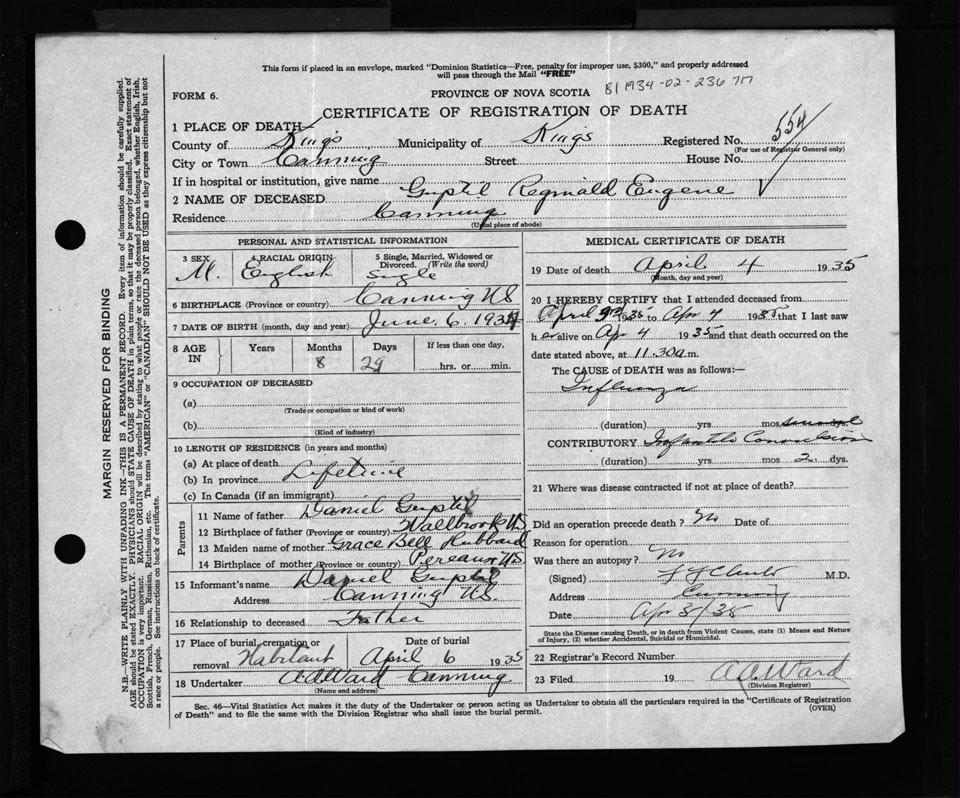 This form if placed in an envelope, marked "Dominion Statistics—Free, penalty for improper use, $300," and properly addressed
will pass through the Mail "FREE"
B1 1934-02-236717
FORM 6.
PROVINCE OF NOVA SCOTIA
CERTIFICATE OF REGISTRATION OF DEATH
1 PLACE OF DEATH
County of Kings Municipality of Kings Registered No. 554
(For use of Registrar General only)
City or Town Canning Street House No.
If in hospital or institution, give name
2 NAME OF DECEASED Guptil Reginald Eugene
Residence Canning
(Usual place of abode)
PERSONAL AND STATISTICAL INFORMATION
3 SEX M. 4 RACIAL ORIGIN English 5 Single, Married, Widowed or Divorced. (Write the word) Single
6 BIRTHPLACE (Province or country) Canning NS
7 DATE OF BIRTH (month, day and year) June 6, 1934
8 AGE IN Years Months 8 Days 29 If less than one day, hrs. or min.
9 OCCUPATION OF DECEASED
(a)
(Trade or occupation or kind of work)
(b)
(Kind of industry)
10 LENGTH OF RESIDENCE (in years and months)
(a) At place of death
(b) In province Lifetime
(c) In Canada (if an immigrant)
Parents
11 Name of father Daniel Guptil
12 Birthplace of father (Province or country) Wallbrook NS
13 Maiden name of mother Grace Bell Hubbard
14 Birthplace of mother (Province or country) Pereaux NS
15 Informant's name Daniel Guptil
Address Canning NS.
16 Relationship to deceased Father
17 Place of burial, cremation or removal Habitant Date of burial April 6 1935
18 Undertaker A A Ward Canning
(Name and address)
MEDICAL CERTIFICATE OF DEATH
19 Date of death April 4 1935
(Month, day and year)
20 I HEREBY CERTIFY that I attended deceased from
April 1935 to Apr 4 1935 that I last saw
h er alive on Ap 4 1935 and that death occurred on
date stated above, at 11.30 a m.
The CAUSE of DEATH was as follows:—
Influenza
(duration) yrs. mos.
CONTRIBUTORY Infantile Convulsions
(duration) yrs. mos. 2 dys.
21 Where was disease contracted if not at place of death?
Did an operation precede death? No Date of
Reason for operation
Was there an autopsy? No
(Signed) M.D.
Address Canning
Date Apr 5/35
State the Disease causing Death, or in death from Violent Causes, state (1) Means and Nature
of Injury, (2) whether Accidental, Suicidal or Homicidal.
22 Registrar's Record Number
23 Filed 19 A A Ward
(Division Registrar)
Sec. 46—Vital Statistics Act makes it the duty of the Undertaker or person acting as Undertaker to obtain all the particulars required in the "Certificate of Registration
of Death" and to file the same with the Division Registrar who shall issue the burial permit.
(OVER)
MARGIN RESERVED FOR BINDING
N.B.—WRITE PLAINLY WITH UNFADING INK—THIS IS A PERMANENT RECORD. Every item of information should be carefully supplied.
AGE should be stated EXACTLY. PHYSICIANS should STATE CAUSE OF DEATH in plain terms, so that it may be properly classified. Exact statement of
OCCUPATION is very important. RACIAL ORIGIN will be described by stating to what people or race the deceased person belonged, whether English, Irish,
Scottish, French, German, Russian, Ruthenian, etc. The terms "AMERICAN" or "CANADIAN" SHOULD NOT BE USED as they express citizenship but not
a race or people. See instructions on back of certificate.